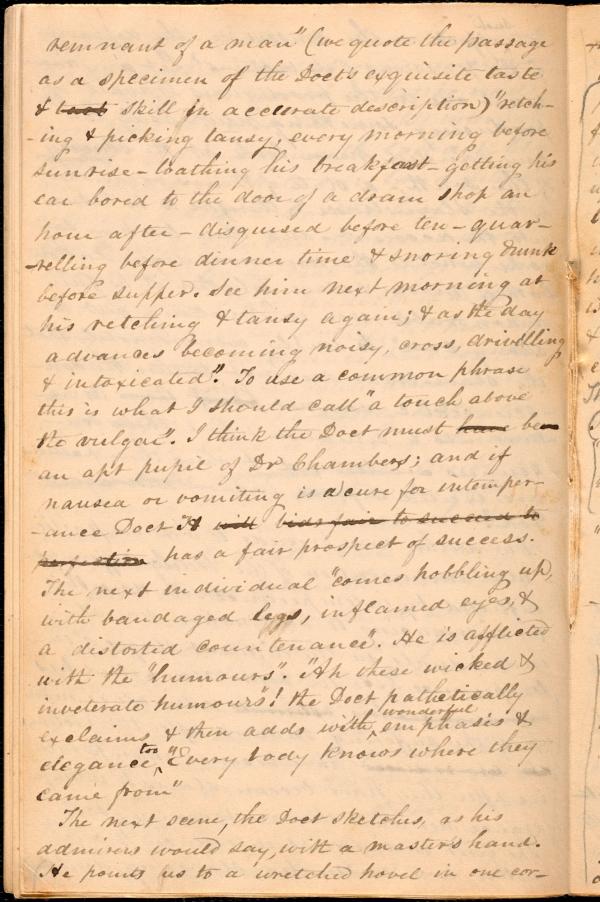 remnant of a man" (we quote the passage
as a specimen of the Doct's exquisite taste
& taste skill in accurate description) "retch-
-ing & picking tansy, every morning before
sunrise – loathing his breakfast – getting his
ear bored to the door of a dram shop an
hour after – disguised before ten – quar-
-relling before dinner time & snoring drunk
before supper. See him next morning at
his retching & tansy again; & as the day
advances becoming noisy, cross, drivelling
& intoxicated". To use a common phrase
this is what I should call "a touch above
the vulgar". I think the Doct must have been
an apt pupil of Dr Chambers; and if
nausea or vomiting is a cure for intemper-
-ance Doct H will bids fair to succeed to
perfection has a fair prospect of success.
The next individual "comes hobbling up,
with bandaged legs, inflamed eyes, &
a distorted countenance". He is afflicted
with the "humours". "Ah these wicked &
inveterate humours"! the Doct pathetically
exclaims & then adds with wonderful emphasis &
elegance too, "Every body knows where they
came from"
The next scene, the Doct sketches, as his
admirers would say, with a master's hand.
He points us to a wretched hovel in one cor-